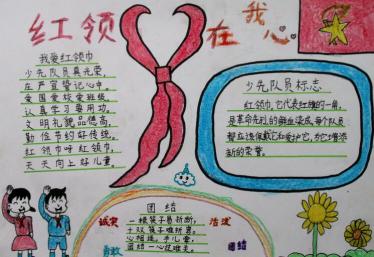 红领 在我心
我爱红领巾
少先队员真光荣,
庄严宣誓记心中。
爱国爱校爱班级,
认真学习要用功。
文明礼貌品德高,
勤俭节约好传统。
红领巾呀红领巾,
天天向上好儿童。
少先队员标志
红领巾,它代表红旗的一角,
是革命先烈的鲜血染成,每个队员
都应该佩戴它和爱护它,为它增添
新的荣誉。
团结
一根筷子易折断,
十双筷子难折弯。
心相连,手儿牵,
团结一心促难关。
诚实
活泼
勇敢
团结